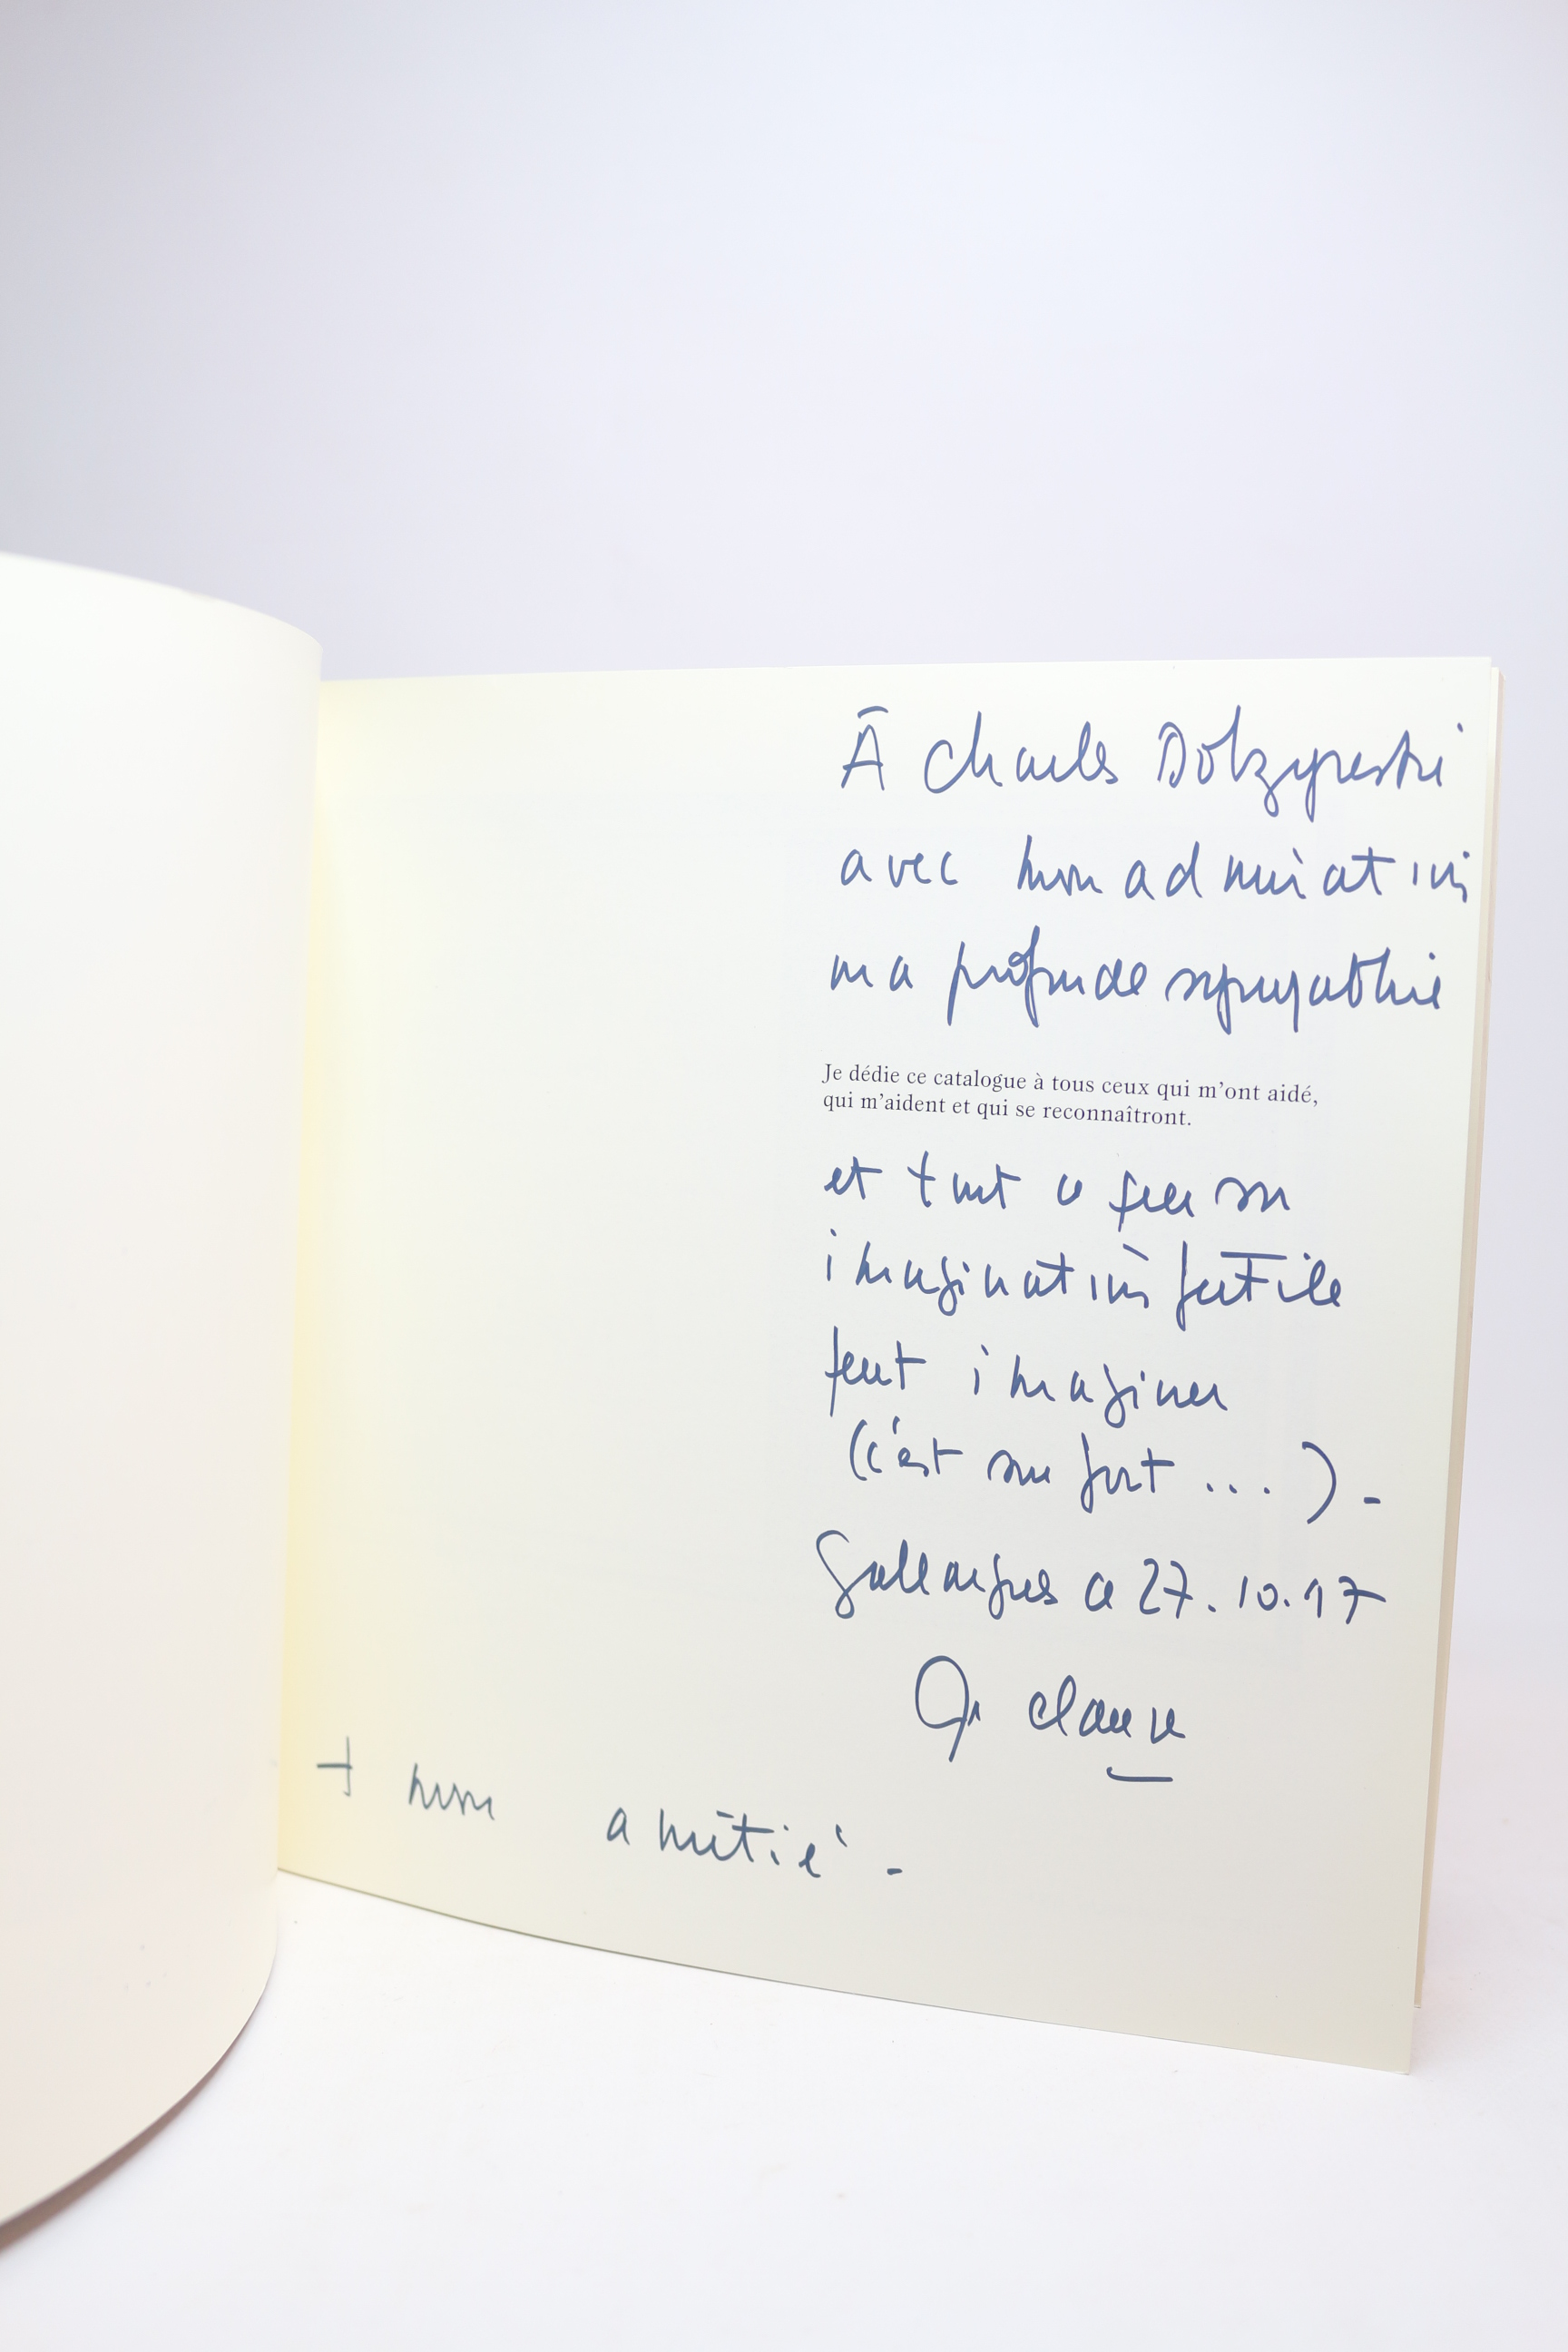 À Charles Dobzynski
avec mon admiration
ma profonde sympathie
Je dédie ce catalogue à tous ceux qui m'ont aidé,
qui m'aident et qui se reconnaîtront.
et tout ce que son
imagination fertile
peut imaginer
(c'est son fort ...) -
Gallargues ce 27.10.17
+ mon amitié -